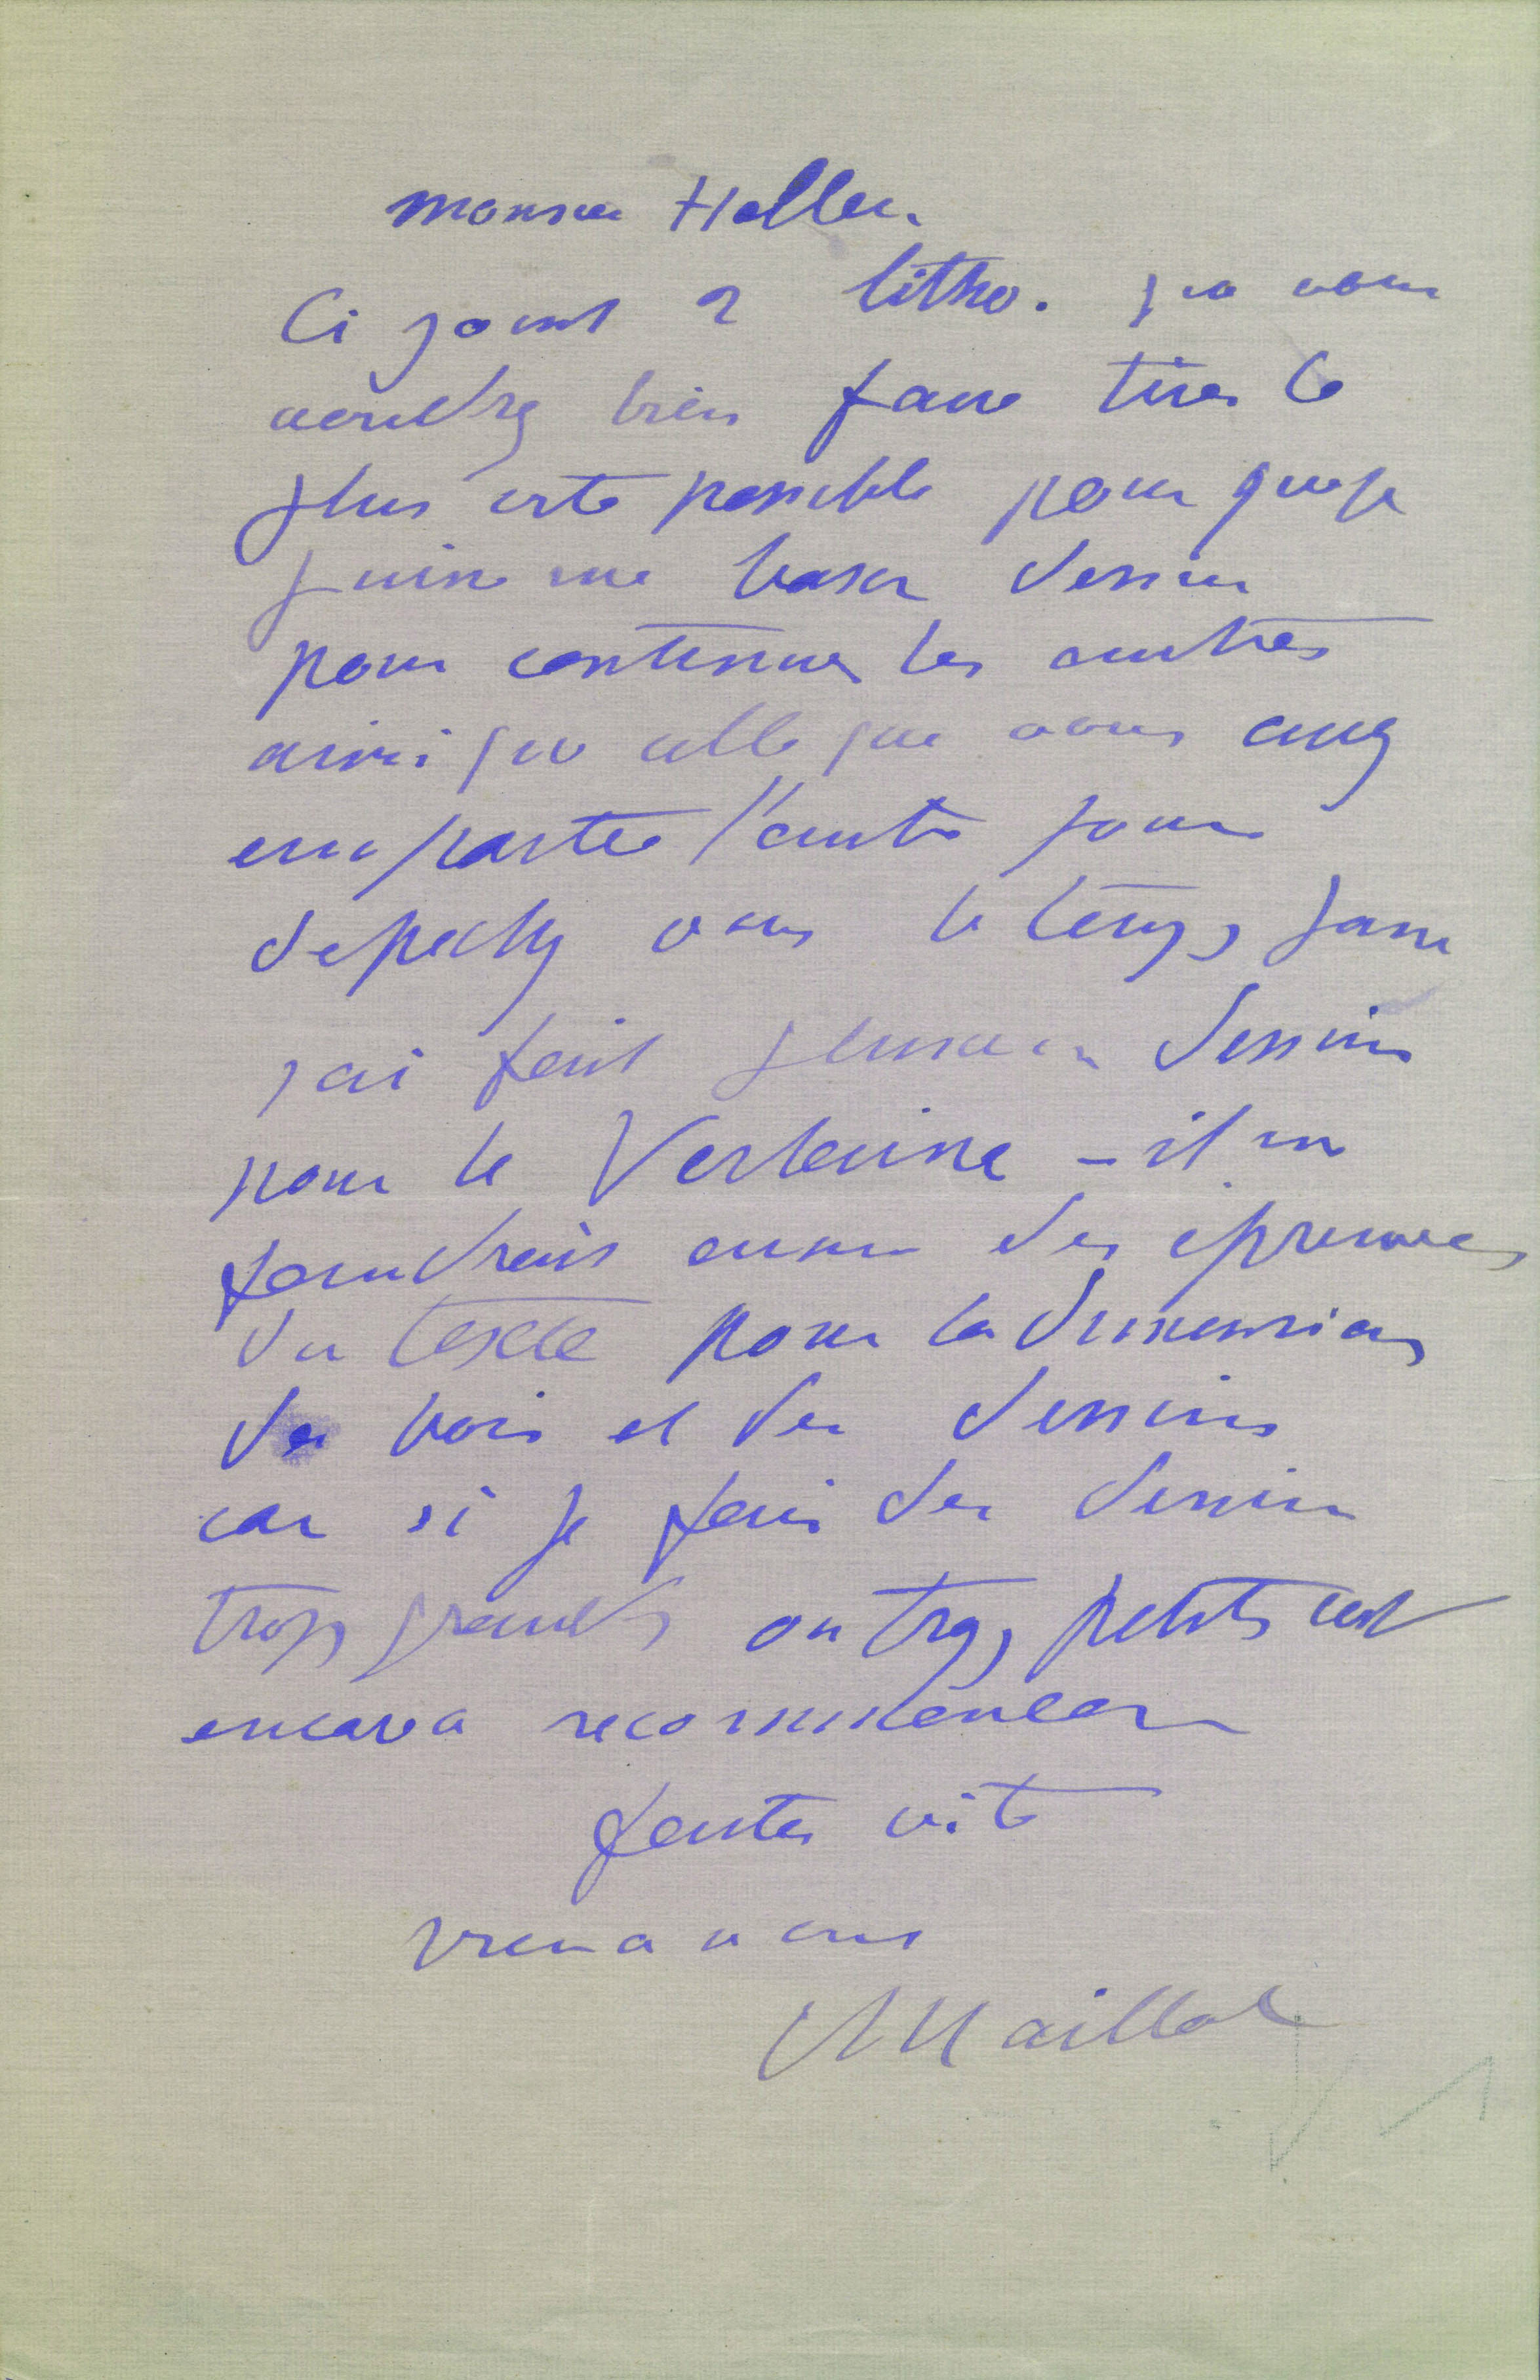 Monsieur Heller.
Ci joint 2 litho. que vous
voudrez bien faire tirer le
plus vite possible pour que je
puisse me baser dessus
pour continuer les autres
ainsi que celle que vous avez
emportée l'autre jour
depechez vous le temps passe
j'ai fait plusieurs dessins
pour le Verlaine – il me
faudrait aussi des épreuves
du texte pour la dimension
des bois et des dessins
car si je fais des dessins
trop grands ou trop petits c'est
encore a recommencer
faites vite
bien a vous
A Maillol